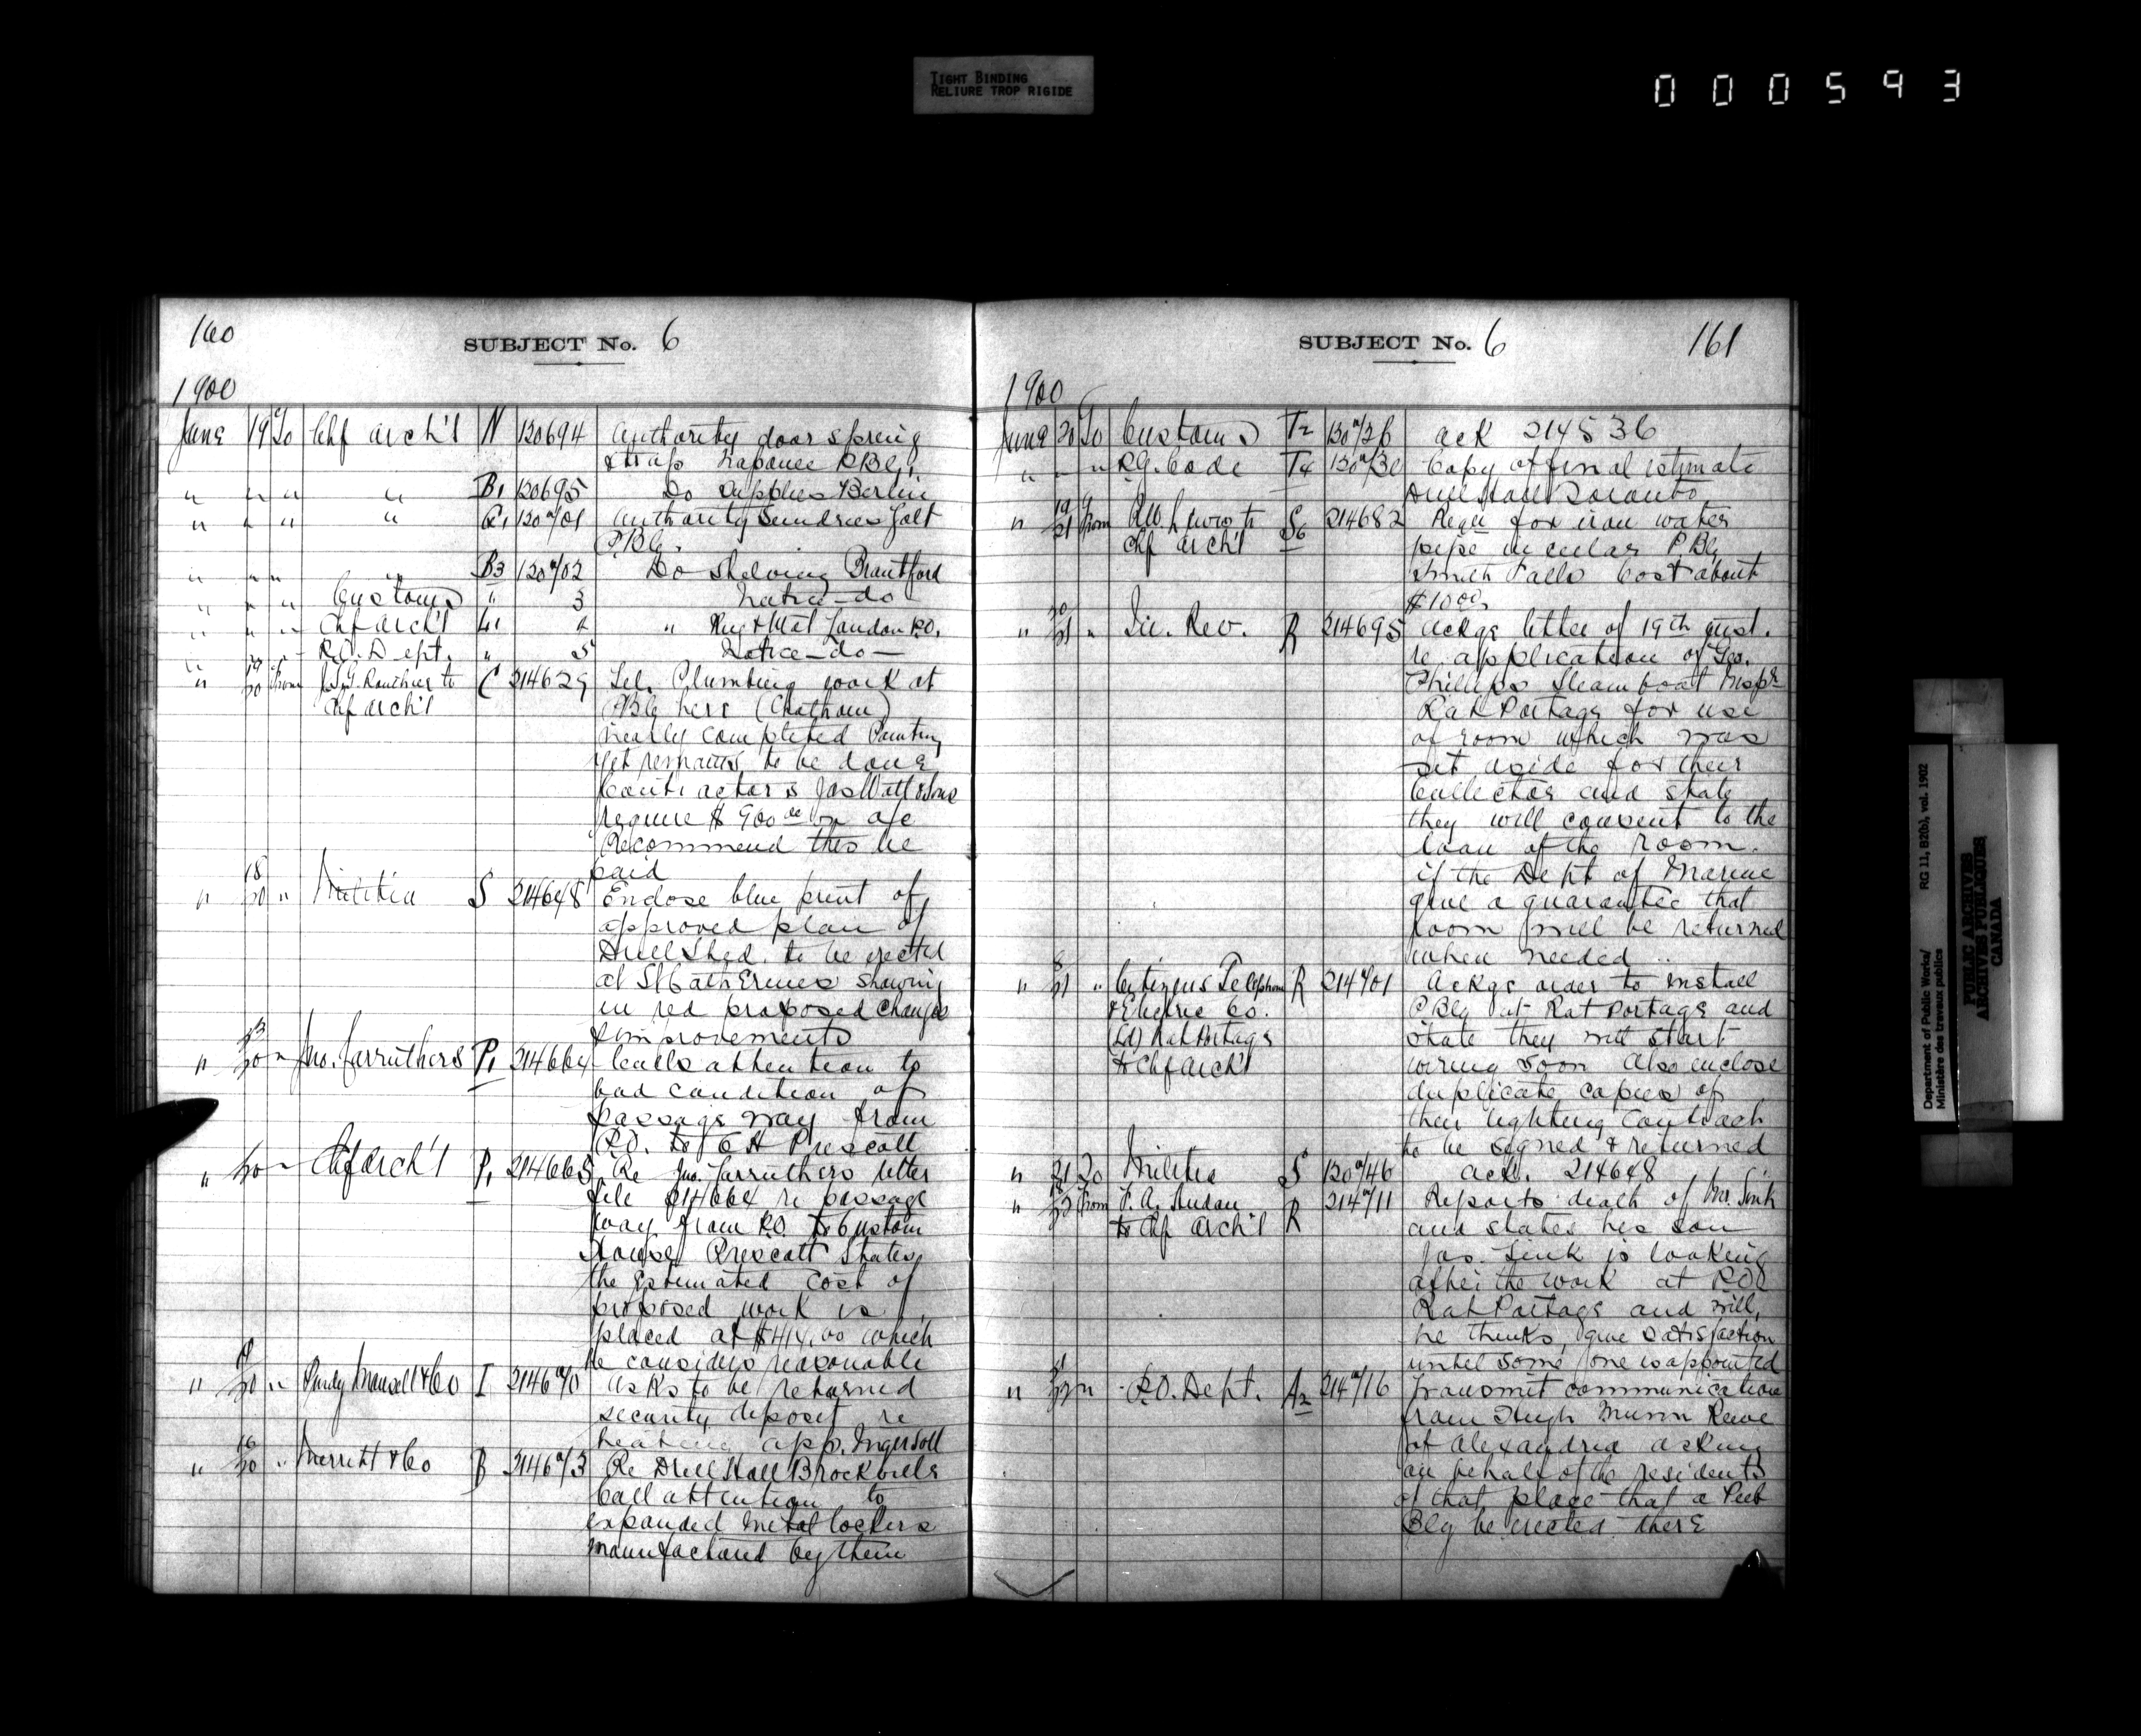 TIGHT BINDING
RELIURE TROP RIGIDE
000593
160
SUBJECT No. 6
1900
June 19 To Chf arch't N 130694 Authority door spring
& straps Napanee P.Blg.
" " " " B1 130695 Do Supplies Berlin
" " " " G1 130701 Authority Sundries Galt
P.Blg.
" " " " B3 130702 Do Shelving Brantford
" " " Customs " 3 Notice - do
" " " Chf arch't L1 4 " Reg & Mat London P.O.
" " " P.O. Dept. " 5 Notice - do -
" 19/20 from J.G. Routhier to C 214629 Tel. Plumbing work at
Chf arch't P Blg here (Chatham)
nearly completed Painting
yet remains to be done
Contractors Jas Watt & Sons
require $900 on a/c
Recommend this be
paid
" 18/20 " Militia S 214648 Enclose blue print of
approved plan of
Drill Shed to be erected
at St Catherines showing
in red proposed changes
& improvements
" 13/20 " Jno. Carruthers P1 214664 Calls attention to
bad condition of
passage way from
P.O. to C H Prescott
" 20 " Chf arch't P1 214665 Re Jno. Carruthers letter
file 214664 re passage
way from P.O. to Custom
House Prescott States
the Estimated cost of
proposed work is
placed at $414.00 which
he considers reasonable
" 20 " Purdy Mansell & Co I 214670 Asks to be returned
security deposit re
heating app. Ingersoll
" 16/20 " Merritt & Co B 214673 Re Drill Hall Brockville
Call attention to
expanded metal lockers
manufactured by them
SUBJECT No. 6
161
1900
June 20 To Customs T2 130726 ack 214536
" " " R.G. Code T4 130730 Copy of final estimate
Drill Hall Toronto
" 19/21 from to S6 214682 Requ for iron water
Chf arch't pipe in cellar P.Blg
Smith Falls Cost about
$10.00
" 20/21 " In. Rev. R 214695 Ackgs letter of 19th inst.
re application of Geo.
Phillips Steamboat Inspr
Rat Portage for use
of room which was
set aside for their
Collector and state
they will consent to the
loan of the room.
if the Dept of Marine
give a guarantee that
room will be returned
when needed
" 8/21 " Citizens Telephone R 214701 Ackgs order to install
& Electric Co. P Blg at Rat Portage and
(Ld) Rat Portage state they will start
to Chf arch't wiring soon Also enclose
duplicate copies of
their lighting contract
to be signed & returned
" 21 To Militia S 130746 ack. 214648
" 18/22 from F. A. Hudson R 214711 Reports death of Mr. Sink
to Chf arch't R and states his son
Jas. Sink is looking
after the work at P.O.
Rat Portage and will,
he thinks, give satisfaction
until some one is appointed
" 21/22 " P.O. Dept. A2 214716 Transmit communication
from Hugh Munro Reeve
of Alexandria asking
on behalf of the residents
of that place that a Pub
Blg be erected there
Department of Public Works/
Ministère des travaux publics
RG 11, B2(b), vol. 1902
PUBLIC ARCHIVES
ARCHIVES PUBLIQUES
CANADA